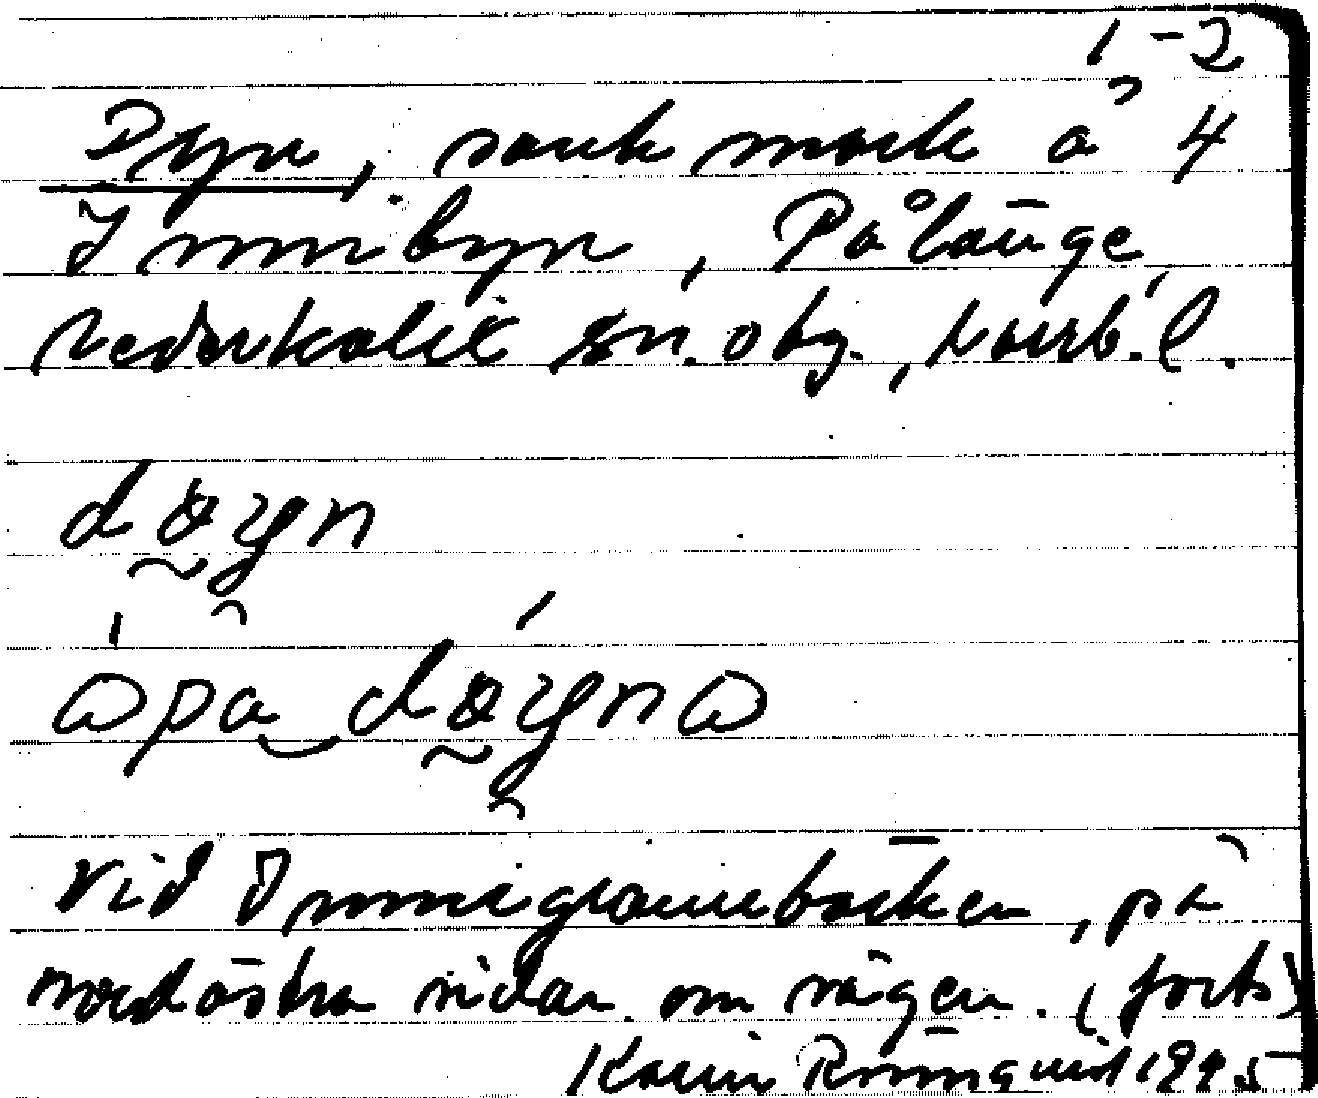 1-2
Dyn, sank mark å 4
Innibyn, Pålänge,
Nederkalix sn. obg., Norrb. l.
døyn
åpa døyna
vid Innigrannebäcken, på
nordöstra sidan om vägen. (forts)
Karin Rönnquist 1945